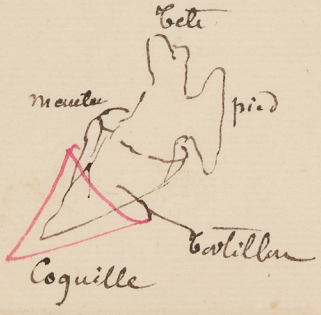 Tête
manteau
pied
Tortillon
Coquille